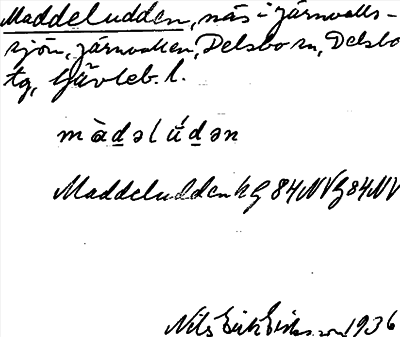 Maddeludden, näs i Järnvalls-
sjön, Järnvallen, Delsbo sn, Delsbo
tg, Gävleb. l.
màdəlúdən
Maddeludden hg 84NVg84NV
Nils Erik Eriksson 1936